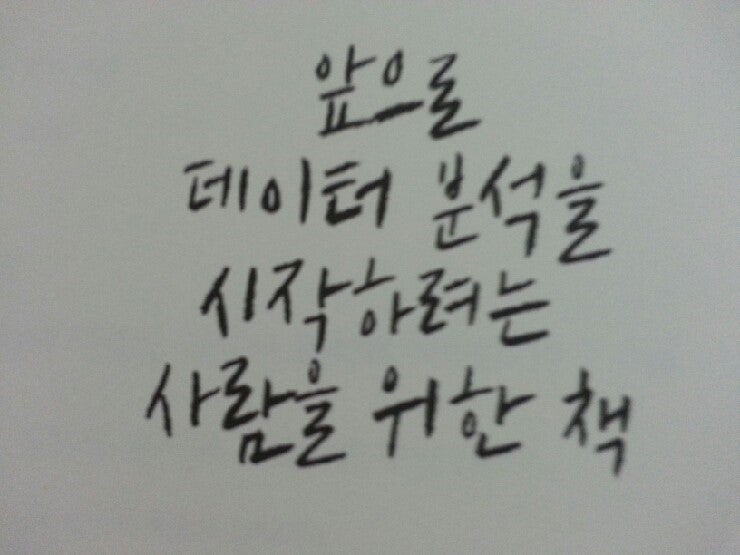 앞으로
데이터 분석을
시작하려는
사람을 위한 책